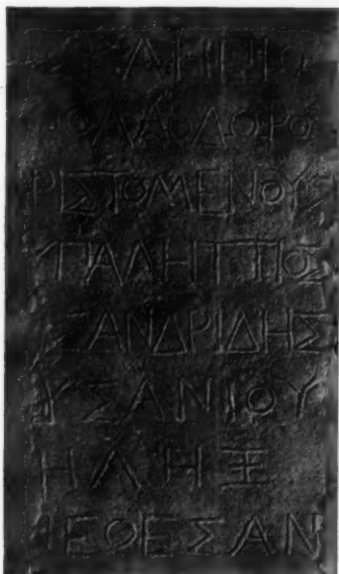 ΣΚΛΗΠΙΩ
ΠΟΛΛΟΔΩΡΟ
ΡΙΣΤΟΜΕΝΟΥΣ
ΥΠΑΛΗΤΤΙΟΣ
ΥΣΑΝΔΡΙΔΗΣ
ΥΣΑΝΙΟΥ
ΗΛΗΞ
ΝΕΘΕΣΑΝ